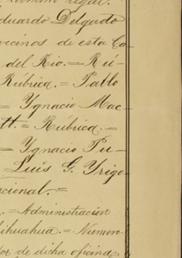 numero legal.
duardo Delgado
vecinos de esta Co
del Rio.= Rú-
Rúbrica.= Pablo
= Ygnacio Mac-
tt.= Rúbrica.=
= Ygnacio Pi-
Luis G. Yrigo
acional.=
.= Administracion
Chihuahua.= Numero
tor de dicha oficina